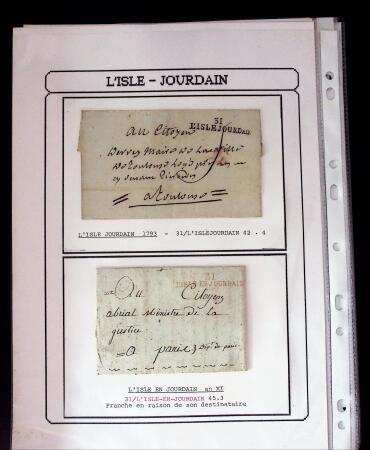 L'ISLE - JOURDAIN
31
L'ISLEJOURDAIN
Au Citoyen
Maire de
de Toulouse
a Toulouse
L'ISLE JOURDAIN 1793 - 31/L'ISLEJOURDAIN 42 . 4
31
L'ISLE-EN-JOURDAIN
Au Citoyen
abrial Ministre de la
justice
a paris
L'ISLE EN JOURDAIN an XI
31/L'ISLE-EN-JOURDAIN 45.3
Franche en raison de son destinataire